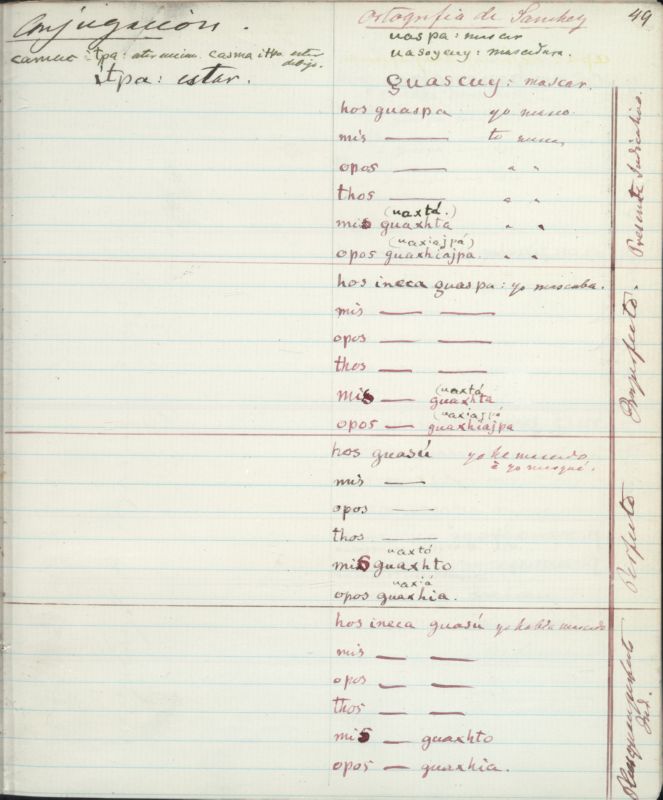 49
Conjugación.
camuc itpa: estar encima. casma itpa estar debajo.
itpa: estar.
Ortografía de Sanchez
uaspa: mascar
uasoycuy: mascadura.
guascuy: mascar.
hos guaspa yo masco
mis ——— tu mascas
opos ——— " "
thos ——— " "
(uaxtá.)
mis guaxhta " "
(uaxiajpá)
opos guaxhiajpa. " "
Presente Indicativo.
hos ineca guaspa: yo mascaba.
mis —— ——
opos —— ——
thos —— ——
(uaxtá
mis — guaxhta
(uaxiajpá
opos — guaxhiajpa
Imperfecto.
hos guasú yo he mascado,
é yo masqué.
mis ——
opos ——
thos ——
uaxtó
mis guaxhto
uaxiá
opos guaxhia.
Perfecto
hos ineca guasú yo había mascado
mis —— ——
opos —— ——
thos —— ——
mis — guaxhto
opos — guaxhia.
Pluscuamperfecto
Ind.